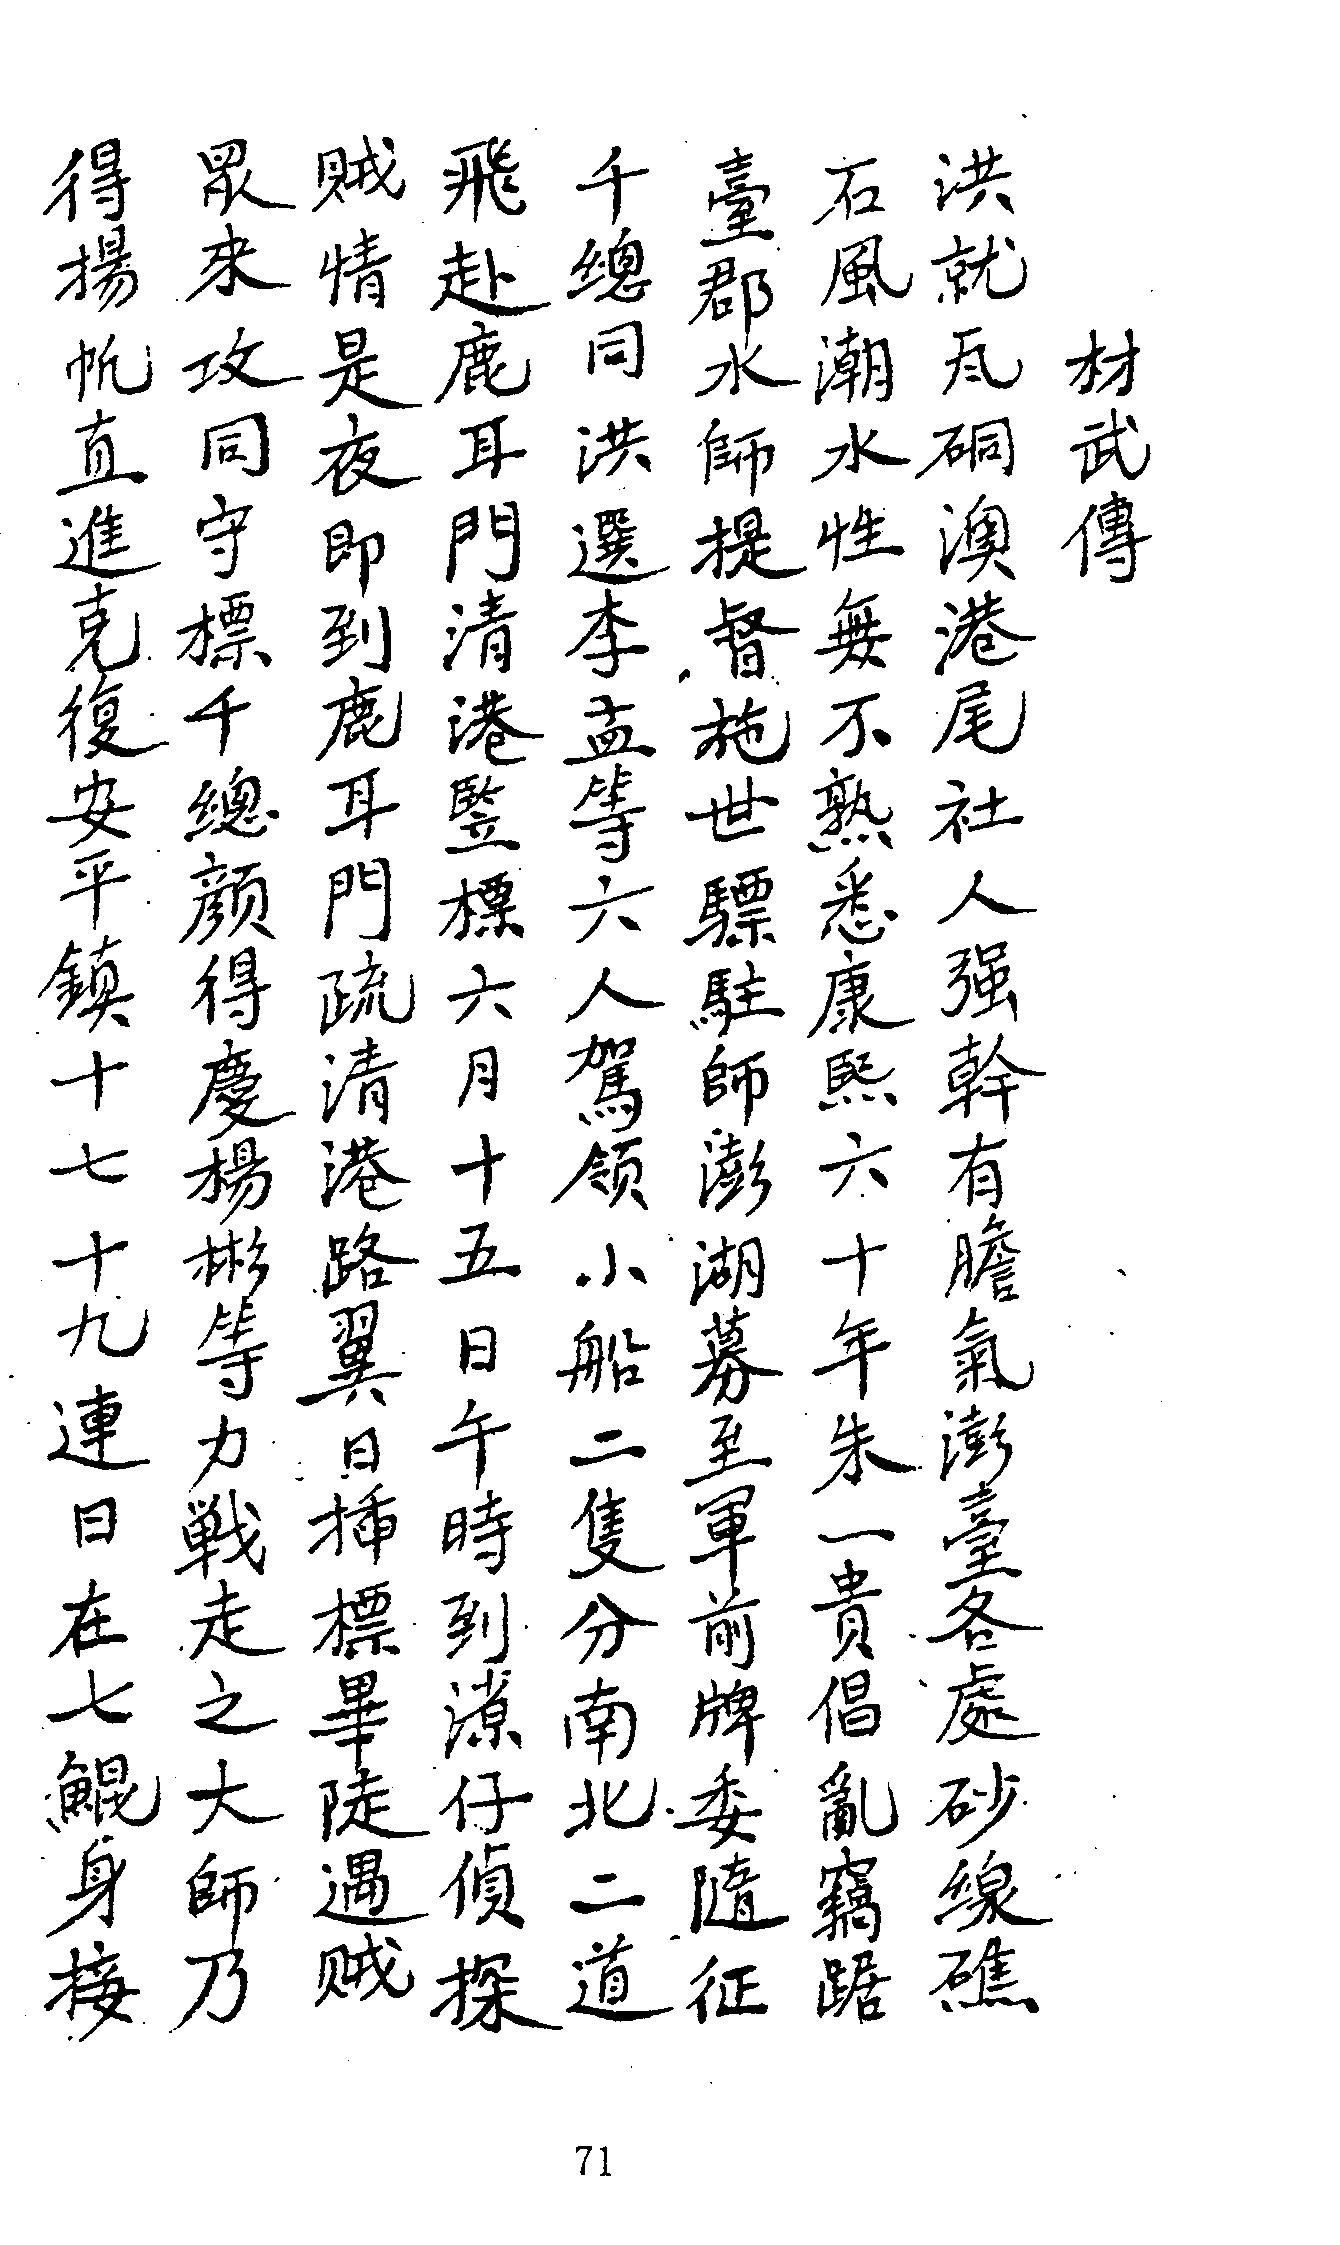 材武傳
洪就瓦硐澳港尾社人强幹有膽氣澎臺各處砂線礁
石風潮水性無不熟悉康熙六十年朱一貴倡亂竊踞
臺郡水師提督施世驃駐師澎湖募至軍前牌委隨征
千總同洪選李孟等六人駕領小船二隻分南北二道
飛赴鹿耳門清港豎標六月十五日午時到潦仔偵探
賊情是夜即到鹿耳門疏清港路翼日插標畢陡遇賊
眾來攻同守標千總顏得慶楊彬等力戰走之大師乃
得揚帆直進克復安平鎮十七十九連日在七鯤身接
71